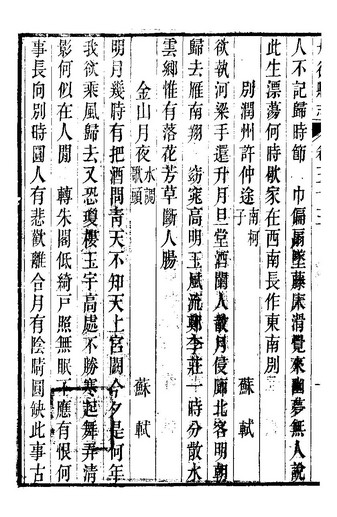 人不記歸時節 巾偏扇墜藤床滑覺來幽夢無人說
此生漂蕩何時歇家在西南長作東南別
別潤州許仲途 南柯子 蘇軾
欲執河梁手還升月旦堂酒闌人散月侵廊北客明朝
歸去雁南翔 窈窕高明玉風流鄭李莊一時分散水
雲鄉惟有落花芳草斷人腸
金山月夜 水調歌頭 蘇軾
明月幾時有把酒問青天不知天上宮闕今夕是何年
我欲乘風歸去又恐瓊樓玉宇高處不勝寒起舞弄清
影何似在人閒 轉朱閣低綺戶照無眠不應有恨何
事長向別時圓人有悲歡離合月有陰晴圓缺此事古